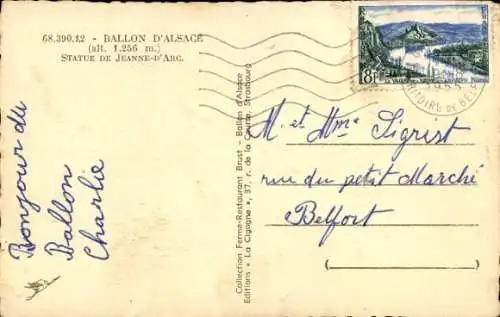 68.390.12 - BALLON D'ALSACE
(alt. 1.256 m.)
STATUE DE JEANNE-D'ARC.
Bonjour du
Ballon
Charlie
Collection Ferme-Restaurant Brust - Ballon d'Alsace
Editions « La Cigogne », 37, r. de la Course, Strasbourg
8F
TERRITOIRE DE BELFORT
M. et Mme Sigrist
rue du petit Marché
Belfort